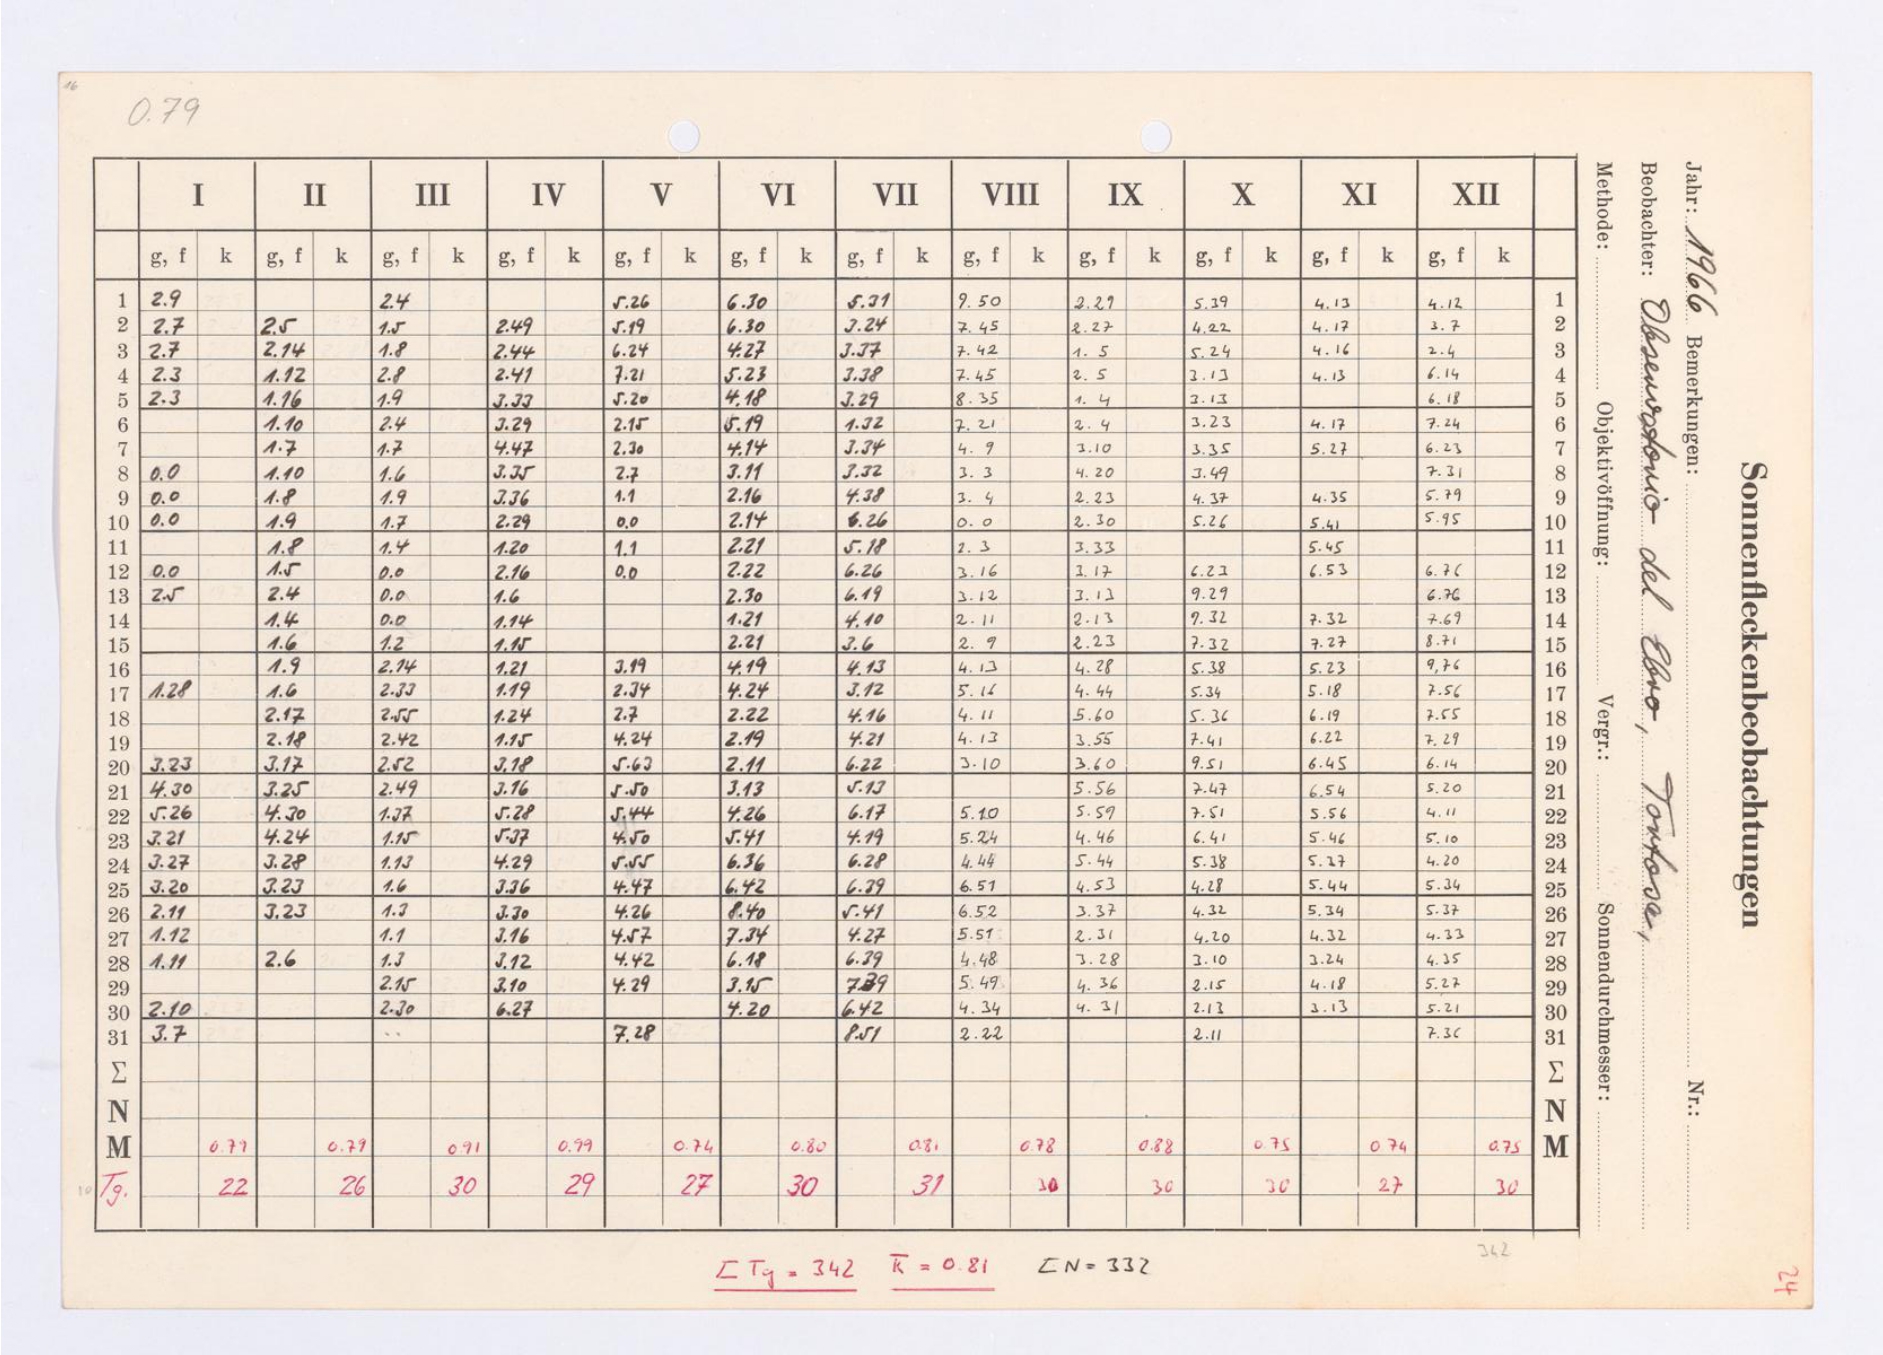 16
0.79
Sonnenfleckenbeobachtungen
Jahr: 1966 Bemerkungen: Nr.:
Beobachter: Observatorio del Ebro, Tortosa,
Methode: Objektivöffnung: Vergr.: Sonnendurchmesser:
I II III IV V VI VII VIII IX X XI XII
g, f k g, f k g, f k g, f k g, f k g, f k g, f k g, f k g, f k g, f k g, f k g, f k
1 2.9 2.4 5.26 6.30 5.31 9.50 2.29 5.39 4.13 4.12 1
2 2.7 2.5 1.5 2.49 5.19 6.30 3.24 7.45 2.27 4.22 4.17 3.7 2
3 2.7 2.14 1.8 2.44 6.24 4.27 3.37 7.42 1.5 5.24 4.16 2.4 3
4 2.3 1.12 2.8 2.41 7.21 5.23 3.38 7.45 2.5 3.13 4.13 6.14 4
5 2.3 1.16 1.9 3.33 5.20 4.18 3.29 8.35 1.4 3.13 6.18 5
6 1.10 2.4 3.29 2.15 5.19 1.32 7.21 2.4 3.23 4.17 7.24 6
7 1.7 1.7 4.47 2.30 4.14 3.34 4.9 3.10 3.35 5.27 6.23 7
8 0.0 1.10 1.6 3.35 2.7 3.11 3.32 3.3 4.20 3.49 7.31 8
9 0.0 1.8 1.9 3.36 1.1 2.16 4.38 3.4 2.23 4.37 4.35 5.79 9
10 0.0 1.9 1.7 2.29 0.0 2.14 6.26 0.0 2.30 5.26 5.41 5.95 10
11 1.8 1.4 1.20 1.1 2.21 5.18 2.3 3.33 5.45 11
12 0.0 1.5 0.0 2.16 0.0 2.22 6.26 3.16 3.17 6.23 6.53 6.76 12
13 2.5 2.4 0.0 1.6 2.30 6.19 3.12 3.13 9.29 6.76 13
14 1.4 0.0 1.14 1.21 4.10 2.11 2.13 9.32 7.32 7.69 14
15 1.6 1.2 1.15 2.21 3.6 2.9 2.23 7.32 7.27 8.71 15
16 1.9 2.14 1.21 3.19 4.19 4.13 4.13 4.28 5.38 5.23 9,76 16
17 1.28 1.6 2.33 1.19 2.34 4.24 3.12 5.16 4.44 5.34 5.18 7.56 17
18 2.17 2.55 1.24 2.7 2.22 4.16 4.11 5.60 5.36 6.19 7.55 18
19 2.18 2.42 1.15 4.24 2.19 4.21 4.13 3.55 7.41 6.22 7.29 19
20 3.23 3.17 2.52 3.18 5.63 2.11 6.22 3.10 3.60 9.51 6.45 6.14 20
21 4.30 3.25 2.49 3.16 5.50 3.13 5.13 5.56 7.47 6.54 5.20 21
22 5.26 4.30 1.37 5.28 5.44 4.26 6.17 5.10 5.59 7.51 5.56 4.11 22
23 3.21 4.24 1.15 5.37 4.50 5.41 4.19 5.24 4.46 6.41 5.46 5.10 23
24 3.27 3.28 1.13 4.29 5.55 6.36 6.28 4.44 5.44 5.38 5.37 4.20 24
25 3.20 3.23 1.6 3.36 4.47 6.42 6.39 6.51 4.53 4.28 5.44 5.34 25
26 2.11 3.23 1.3 3.30 4.26 8.40 5.41 6.52 3.37 4.32 5.34 5.37 26
27 1.12 1.1 3.16 4.57 7.34 4.27 5.51 2.31 4.20 4.32 4.33 27
28 1.11 2.6 1.3 3.12 4.42 6.18 6.39 4.48 3.28 3.10 3.24 4.35 28
29 2.15 3.10 4.29 3.15 7.39 5.49 4.36 2.15 4.18 5.27 29
30 2.10 2.30 6.27 4.20 6.42 4.34 4.31 2.13 3.13 5.21 30
31 3.7 .. 7.28 8.51 2.22 2.11 7.36 31
Σ Σ
N N
M 0.79 0.79 0.91 0.99 0.74 0.80 0.81 0.78 0.88 0.75 0.74 0.75 M
10 Tg. 22 26 30 29 27 30 31 30 30 30 27 30
Σ Tg = 342 k̄ = 0.81 Σ N = 332
342
24